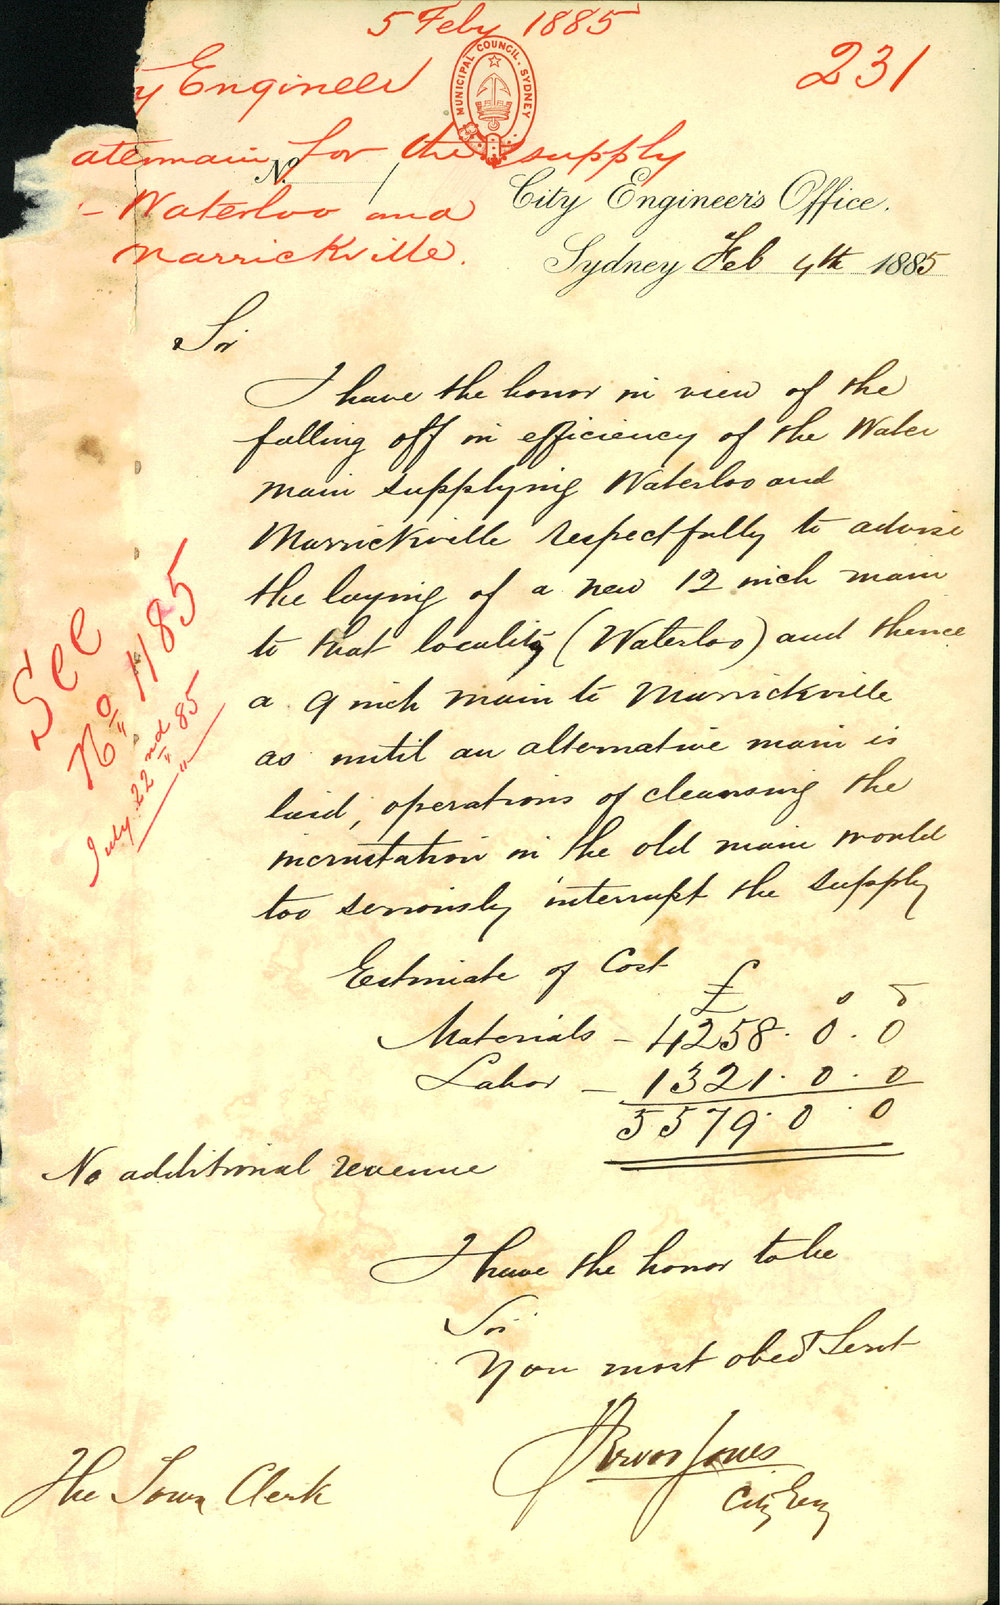 5 Feby 1885
231
y Engineer
MUNICIPAL COUNCIL. SYDNEY
atermain for the supply
No.
- Waterloo and
Marrickville.
City Engineer's Office.
Sydney Feb 4th 1885
Sir
I have the honor in view of the
falling off in efficiency of the Water
main supplying Waterloo and
Marrickville respectfully to advise
the laying of a new 12 inch main
to that locality (Waterloo) and thence
a 9 inch main to Marrickville
as until an alternative main is
laid, operations of cleansing the
incrustation in the old main would
too seriously interrupt the supply
See
No 1185
July 22nd 85
Estimate of Cost
£ s d
Materials - 4258. 0. 0
Labor - 1321. 0. 0
5579. 0. 0
No additional revenue
I have the honor to be
Sir
Your most obedt Servt
Jones
City Eng
The Town Clerk